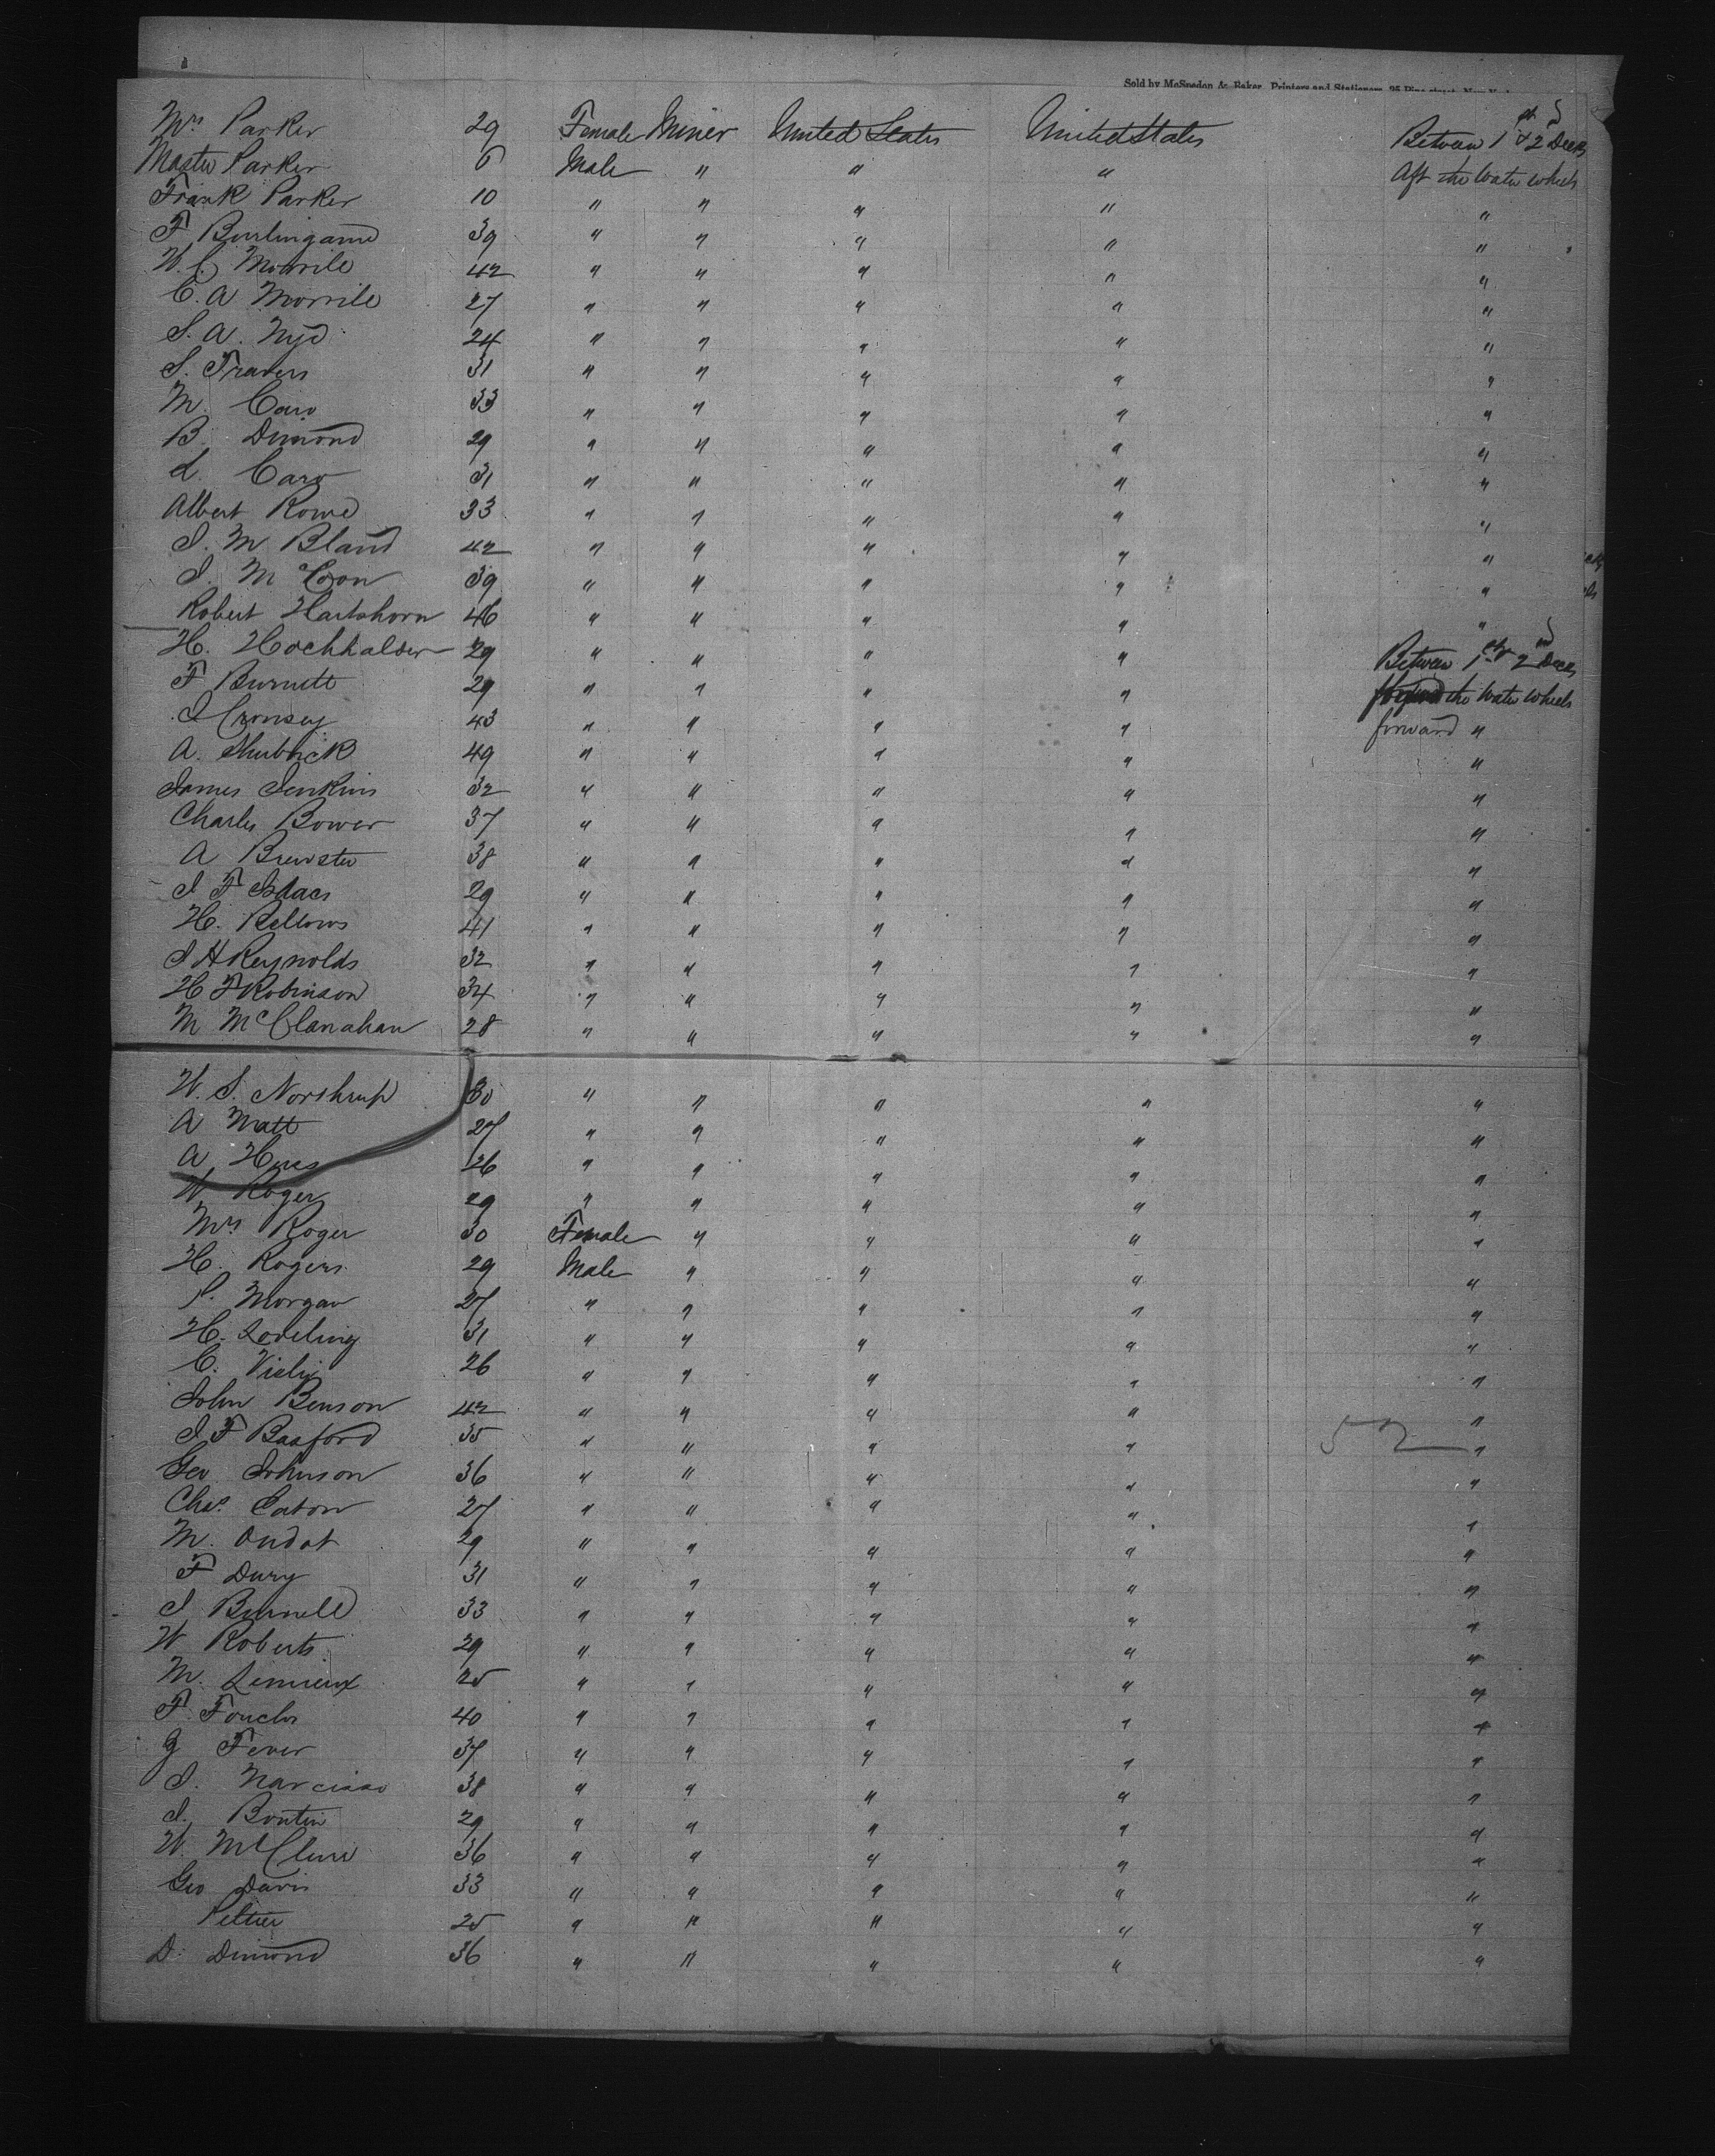 Sold by McSpedon & Baker, Printers and Stationers, 25 Pine street, New York
Mrs Parker 29 Female Miner United States United States Between 1st & 2d Decks
Master Parker 6 Male " " " Aft the Water wheels
Frank Parker 10 " " " " "
F Burlingame 39 " " " " "
W. C. Morrile 42 " " " " "
C. A Morrile 27 " " " " "
S. A. Nye 24 " " " " "
S. Travers 31 " " " " "
M. Caro 33 " " " " "
B. Dimond 29 " " " " "
L. Caro 31 " " " " "
Albert Rowe 33 " " " " "
J. M Bland 42 " " " " "
J. McCoon 39 " " " " "
Robert Hartshorn 46 " " " " "
H. Hochhalder 29 " " " " Between 1st & 2nd Decks
F Burnett 29 " " " " the Water Wheels
J Cronsey 43 " " " " forward "
A. Shubrick 49 " " " " "
James Jenkins 32 " " " " "
Charles Bower 37 " " " " "
A Brewster 38 " " " " "
J F Isaacs 29 " " " " "
H. Bellows 41 " " " " "
J H Reynolds 32 " " " " "
H F Robinson 34 " " " " "
M McClanahan 28 " " " " "
W. S. Northrup 30 " " " " "
A Matt 27 " " " " "
A 26 " " " " "
W Roger 29 " " " " "
Mrs Roger 30 Female " " " "
H. Rogers 29 Male " " " "
P. Morgan 27 " " " " "
H. 31 " " " " "
C. 26 " " " " "
John Benson 42 " " " " "
J F Basford 35 " " " " 52 "
Geo Johnson 36 " " " " "
Chas. Eaton 27 " " " " "
M. Oudot 29 " " " " "
F Dury 31 " " " " "
J Burnell 33 " " " " "
W Roberts 29 " " " " "
M. Lemieux 25 " " " " "
F. 40 " " " " "
Fever 37 " " " " "
J. Narcisso 38 " " " " "
J. Boutin 29 " " " " "
W. McClure 36 " " " " "
Geo Davis 33 " " " " "
Peltier 25 " " " " "
D. Dimond 36 " " " " "